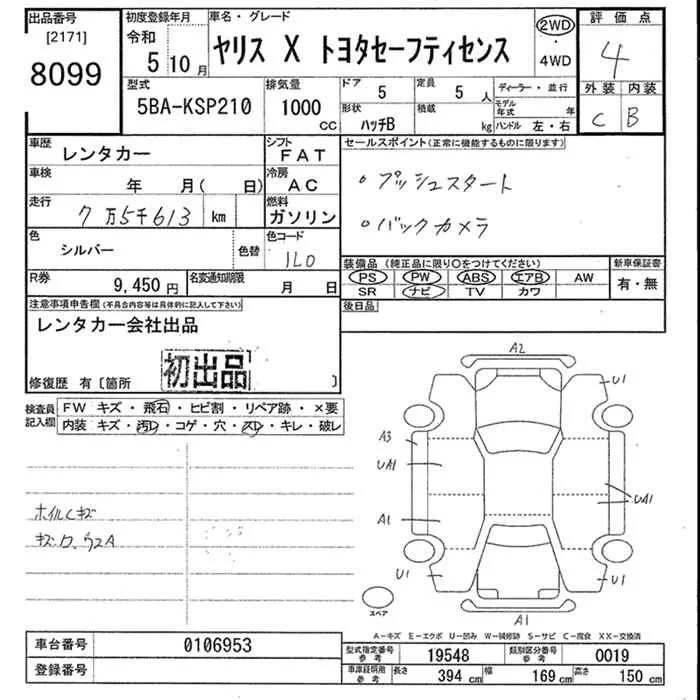 出品番号
[2171]
8099
初度登録年月
令和
5 10 月
車名・グレード
ヤリス X トヨタセーフティセンス
2WD
・
4WD
評価点
4
外装 内装
C B
型式
5BA-KSP210
排気量
1000
CC
ドア
5
形状
ハッチB
定員
5 人
積載
kg
ディーラー・並行
モデル年式 年
ハンドル 左・右
車歴
レンタカー
シフト
FAT
車検
年 月( 日)
冷房
AC
走行
7万5千613 km
燃料
ガソリン
色
シルバー
色替
色コード
1L0
R券
9,450 円
名変通知期限
月 日
セールスポイント(正常に機能するものに限ります)
・プッシュスタート
・バックカメラ
装備品(純正品に限り○をつけてください)
PS PW ABS エアB AW
SR ナビ TV カワ
新車保証書
有・無
後日品
注意事項申告欄(不具合内容等は具体的に記入して下さい)
レンタカー会社出品
初出品
修復歴 有〔箇所 〕
検査員記入欄
FW キズ・飛石・ヒビ割・リペア跡・×要
内装 キズ・汚レ・コゲ・穴・スレ・キレ・破レ
ホイルCキズ
キズロ、ウスA
A2
U1
A3
UA1
UA1
A1
U1
U1
A1
スペア
A-キズ E-エクボ U-凹み W-補修跡 S-サビ C-腐食 XX-交換済
車台番号
0106953
登録番号
型式指定番号
参考
19548
類別区分番号
参考
0019
車庫証明用
参考
長さ
394 cm
幅
169 cm
高さ
150 cm